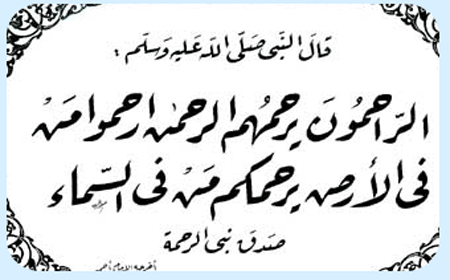 قال النبي صلى الله عليه وسلم :
الرّاحمُونَ يرحمُهم الرحمٰن ارحموا مَنْ
فى الأرض يرحمكم مَنْ فى السّماء
صدق نبى الرحمة
أخرجه الإمام أحمد